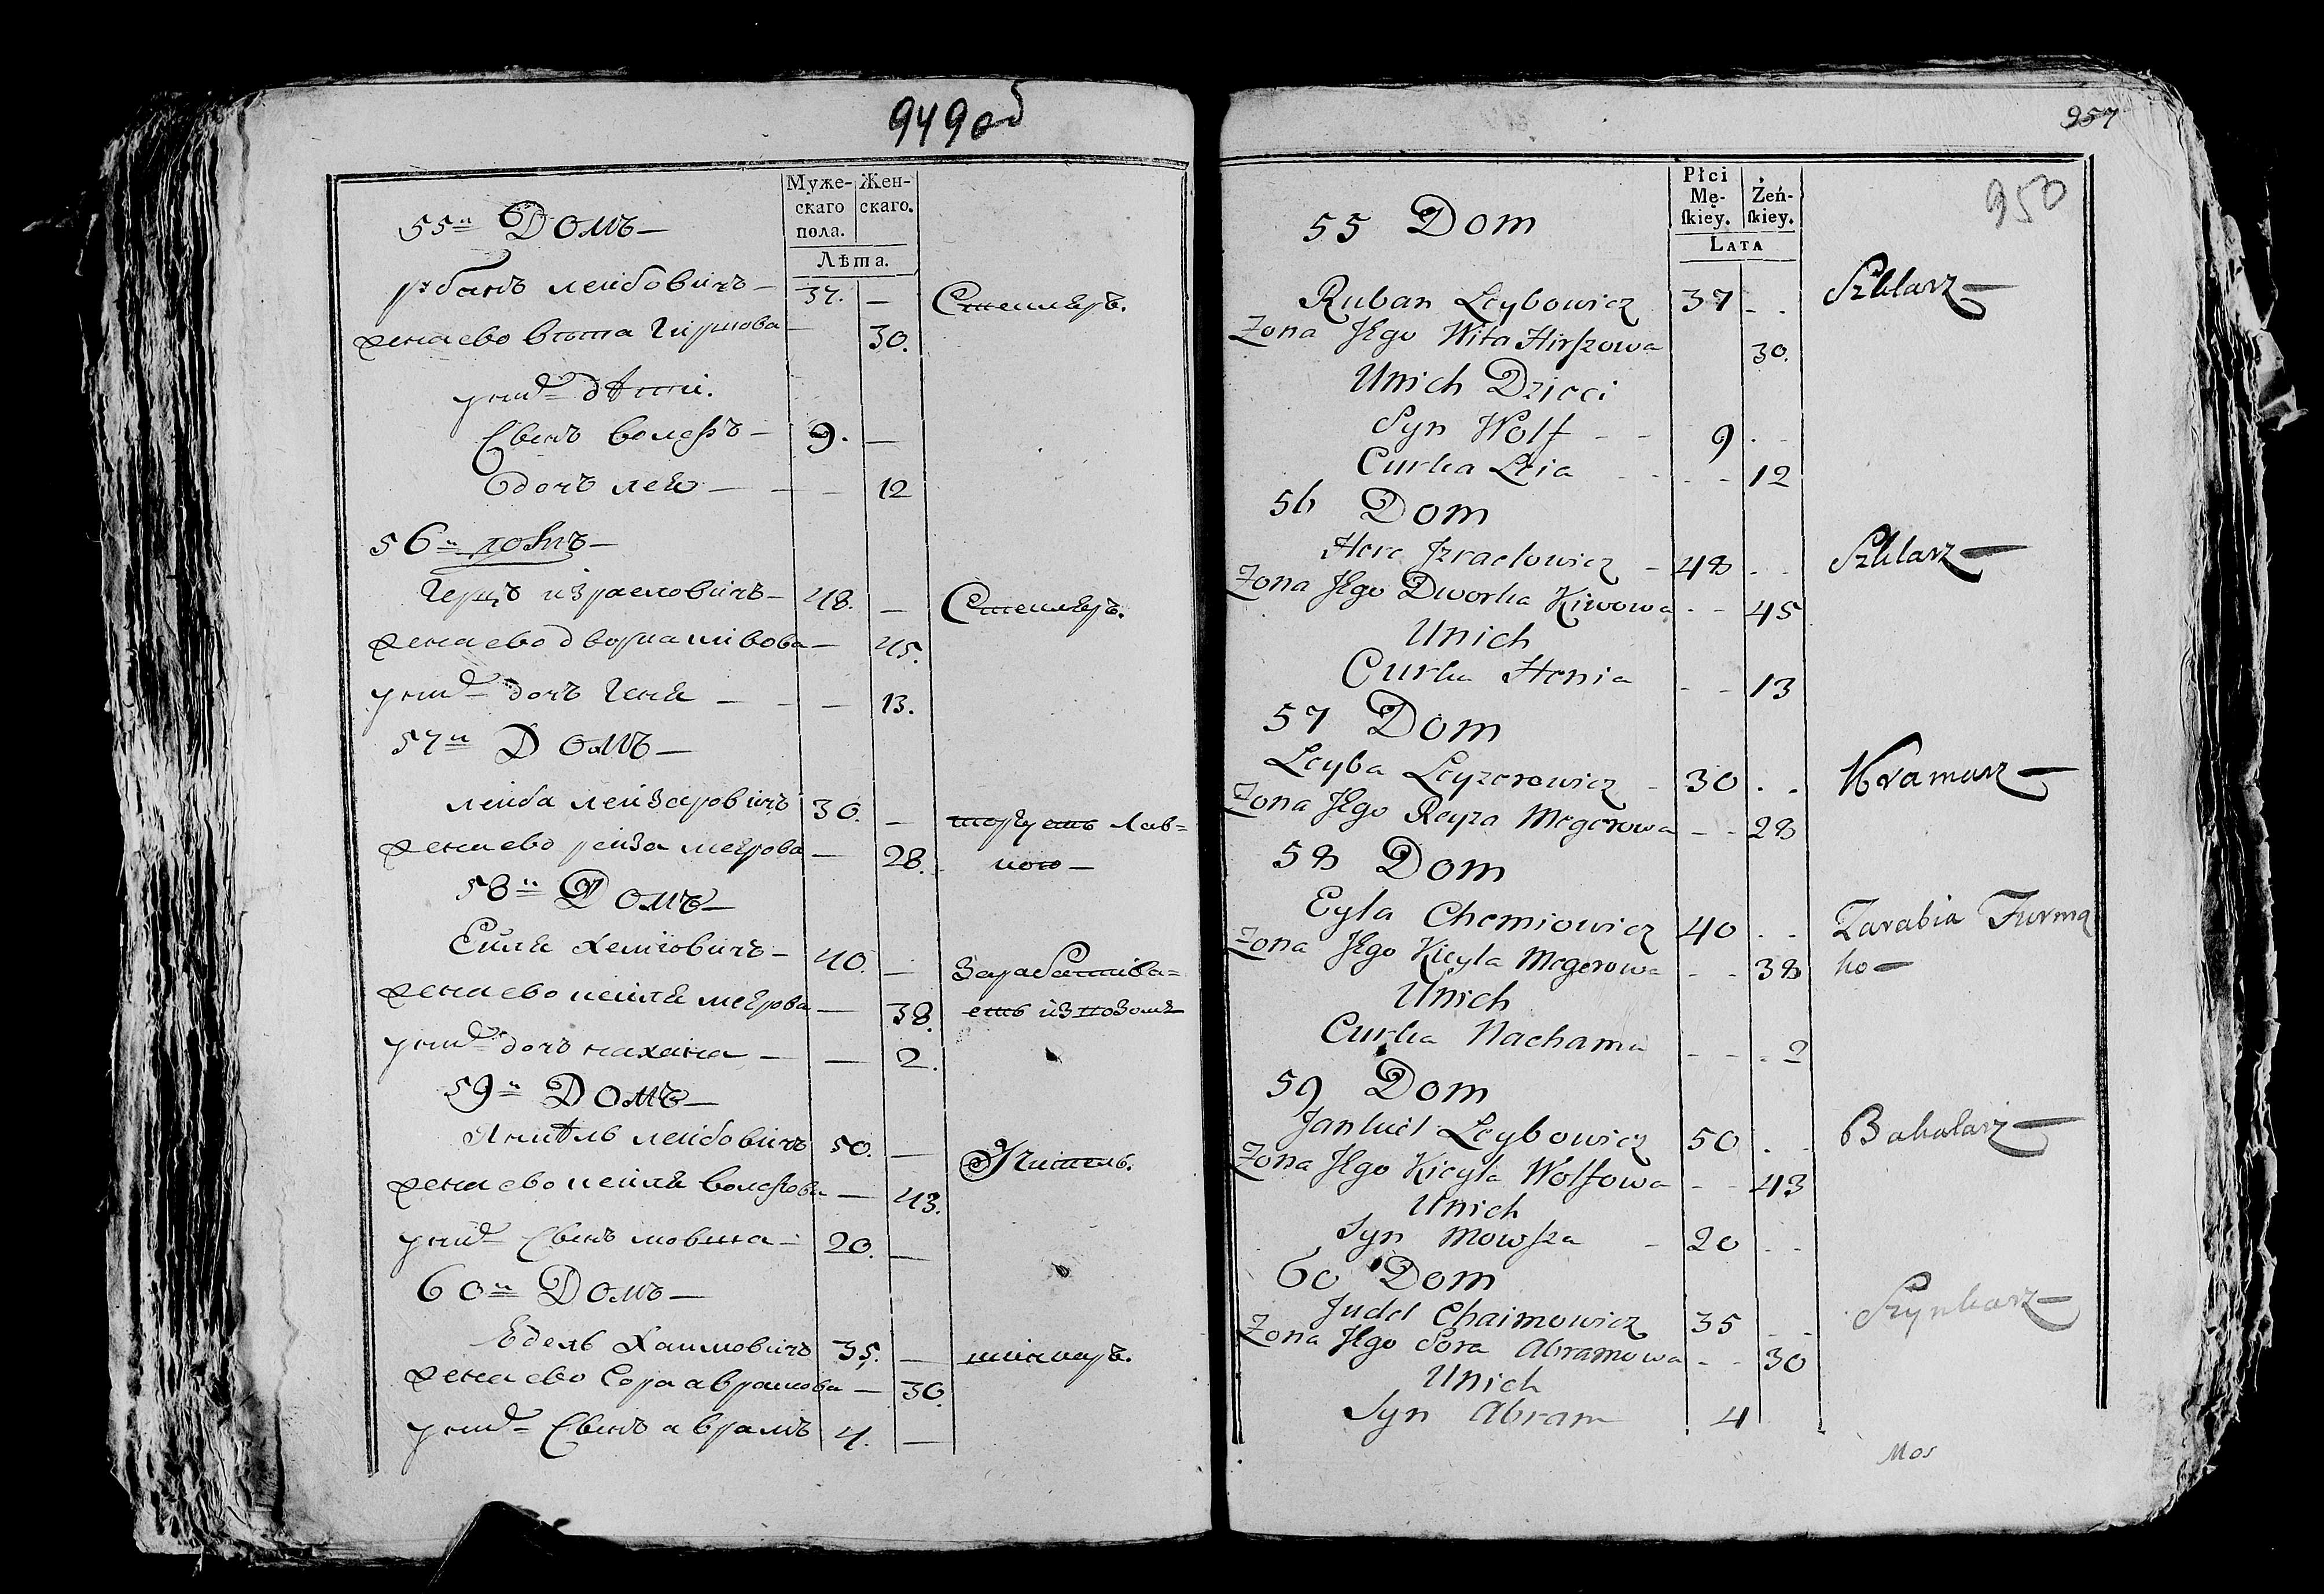 949 об
Муже- Жен-
скаго скаго.
пола.
Лѣта.
55й Домъ —
рубанъ лейбовичъ — 37. — Стекляръ.
жена ево вита гиршова — 30.
у нихъ дѣти.
Сынъ волфъ — 9. —
дочъ лея — — — 12
56й домъ —
Герцъ израеловичъ — 48. — Стекляръ.
жена ево дворка кивова — 45.
у нихъ дочъ геня — — — 13.
57й Домъ —
лейба лейзаровичъ 30. — торгуетъ лав=
жена ево рейза меярова — 28. кою —
58й Домъ —
Ейля хемiовичъ — 40. — зарабатива=
жена ево кейля меярова — 38. етъ изповоза
у нихъ дочъ нахама — — 2.
59й Домъ —
Янкѣль лейбовичъ 50. — Учитель.
жена ево кейля волфова — 43.
у нихъ Сынъ мовша — 20. —
60й Домъ —
Юдель Хаимовичъ 35. — шинкаръ.
жена ево Сора аврамова — 30.
у нихъ Сынъ аврамъ 4. —
957
950
Płci
Mę- Żeń-
ſkiéy. ſkiéy.
LATA
55 Dom
Ruban Leybowicz 37 - - Szklarz —
Zona Jego Wita Hirszowa 30.
Unich Dzieci
Syn Wolf - - 9 - -
Curka Leia - - - - 12
56 Dom
Herc Jzraelowicz - 48 - - Szklarz —
Zona Jego Dworka Kiwowa - - 45
Unich
Curka Henia - - 13
57 Dom
Leyba Leyzerowicz - 30 - - Kramarz —
Zona Jego Reyza Megerowa - - 28
58 Dom
Eyla Chemiowicz 40 - - Zarabia Furma
Zona Jego Kieyla Megerowa - - 38 ko —
Unich
Curka Nachama - - - 2
59 Dom
Jankiel Leybowicz 50 - - Bakalarz —
Zona Jego Kieyla Wolfowa - - 43
Unich
Syn Mowsza - 20 - -
60 Dom
Judel Chaimowicz 35 - - Szynkarz —
Zona Jego Sora Abramowa - - 30
Unich
Syn Abram 4
Mos